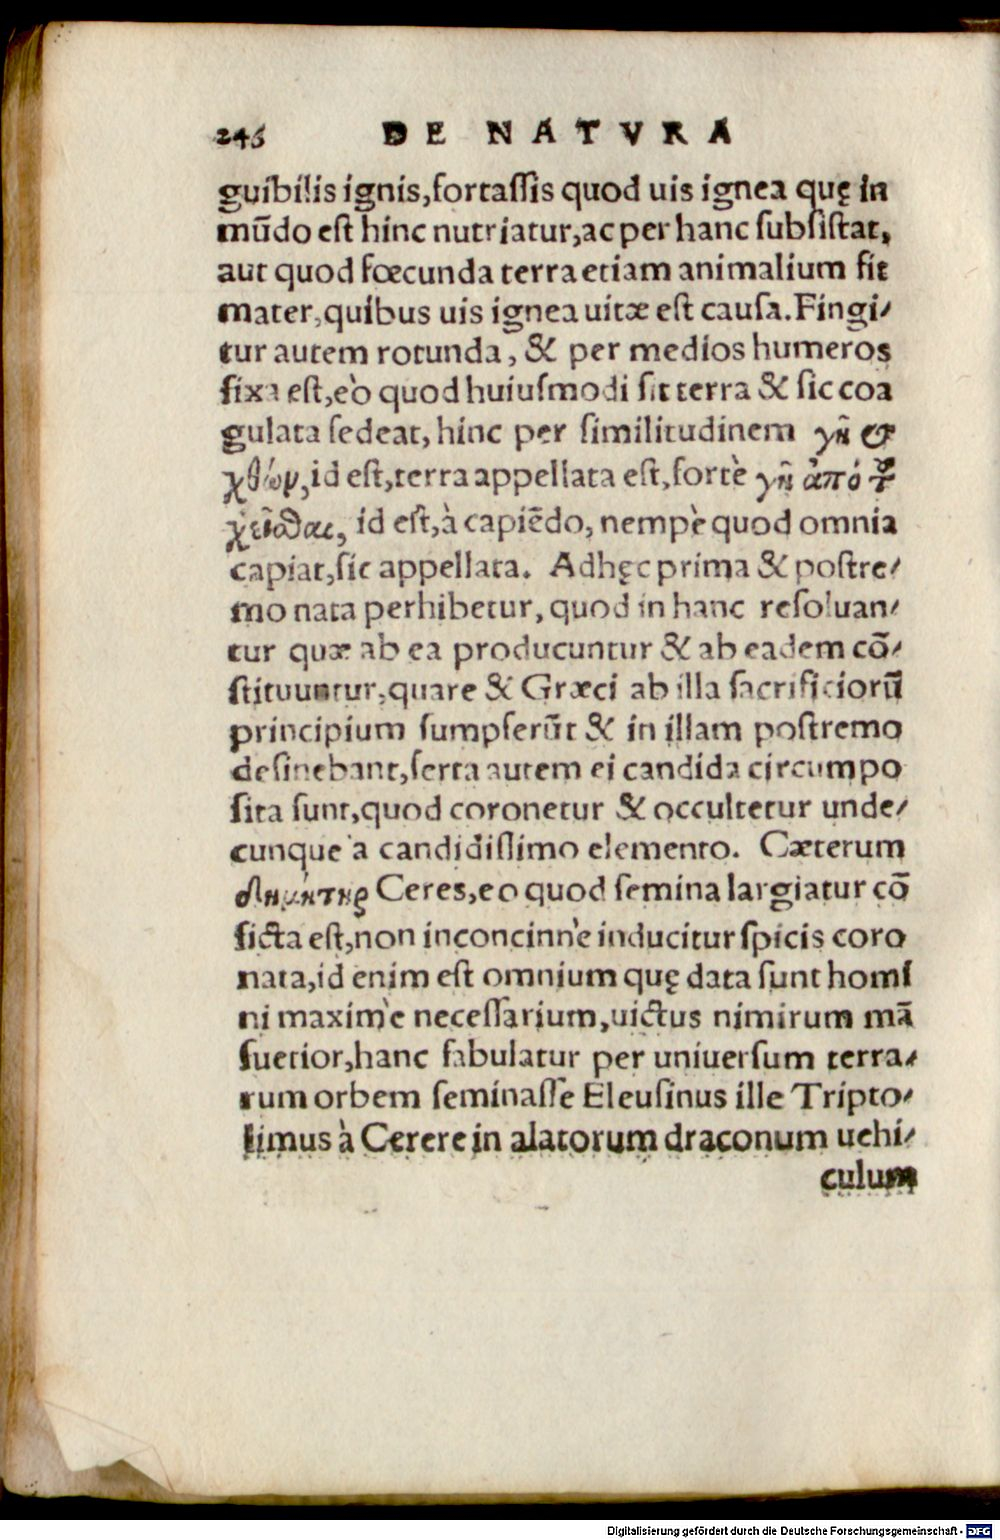 246 DE NATVRA
guibilis ignis,fortaſſis quod uis ignea quę in
mūdo eſt hinc nutriatur,ac per hanc ſubſiſtat,
aut quod fœcunda terra etiam animalium ſit
mater,quibus uis ignea uitæ eſt cauſa.Fingi-
tur autem rotunda, & per medios humeros
fixa eſt,eò quod huiuſmodi ſit terra & ſic coa
gulata ſedeat,hinc per ſimilitudinem γῆ &
χθών,id eſt,terra appellata eſt,fortè γῆ ἀπό τοῦ
χεῖσθαι, id eſt,à capiēdo, nempè quod omnia
capiat,ſic appellata. Adhęc prima & poſtre-
mo nata perhibetur, quod in hanc reſoluan-
tur quæ ab ea producuntur & ab eadem cō-
ſtituuntur,quare & Græci ab illa ſacrificiorū
principium ſumpſerūt & in illam poſtremo
deſinebant,ſerta autem ei candida circumpo
ſita ſunt,quod coronetur & occultetur unde-
cunque à candidiſſimo elemento. Cæterum
Δημήτηρ Ceres,eo quod ſemina largiatur cō
ficta eſt,non inconcinnè inducitur ſpicis coro
nata,id enim eſt omnium quę data ſunt homi
ni maximè neceſſarium,uictus nimirum mā
ſuetior,hanc fabulatur per uniuerſum terra-
rum orbem ſeminaſſe Eleuſinus ille Tripto-
limus à Cerere in alatorum draconum uehi-
culum
Digitalisierung gefördert durch die Deutsche Forschungsgemeinschaft - DFG